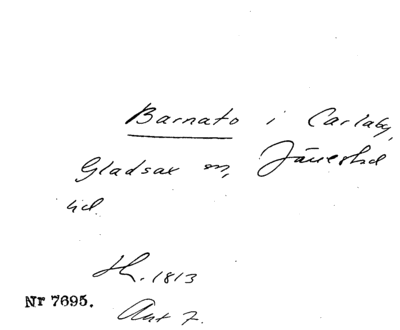 Barnato i Carlaby,
Gladsax sn, Järrestad
hd.
Hl. 1813
Nr 7695.
Akt 7.